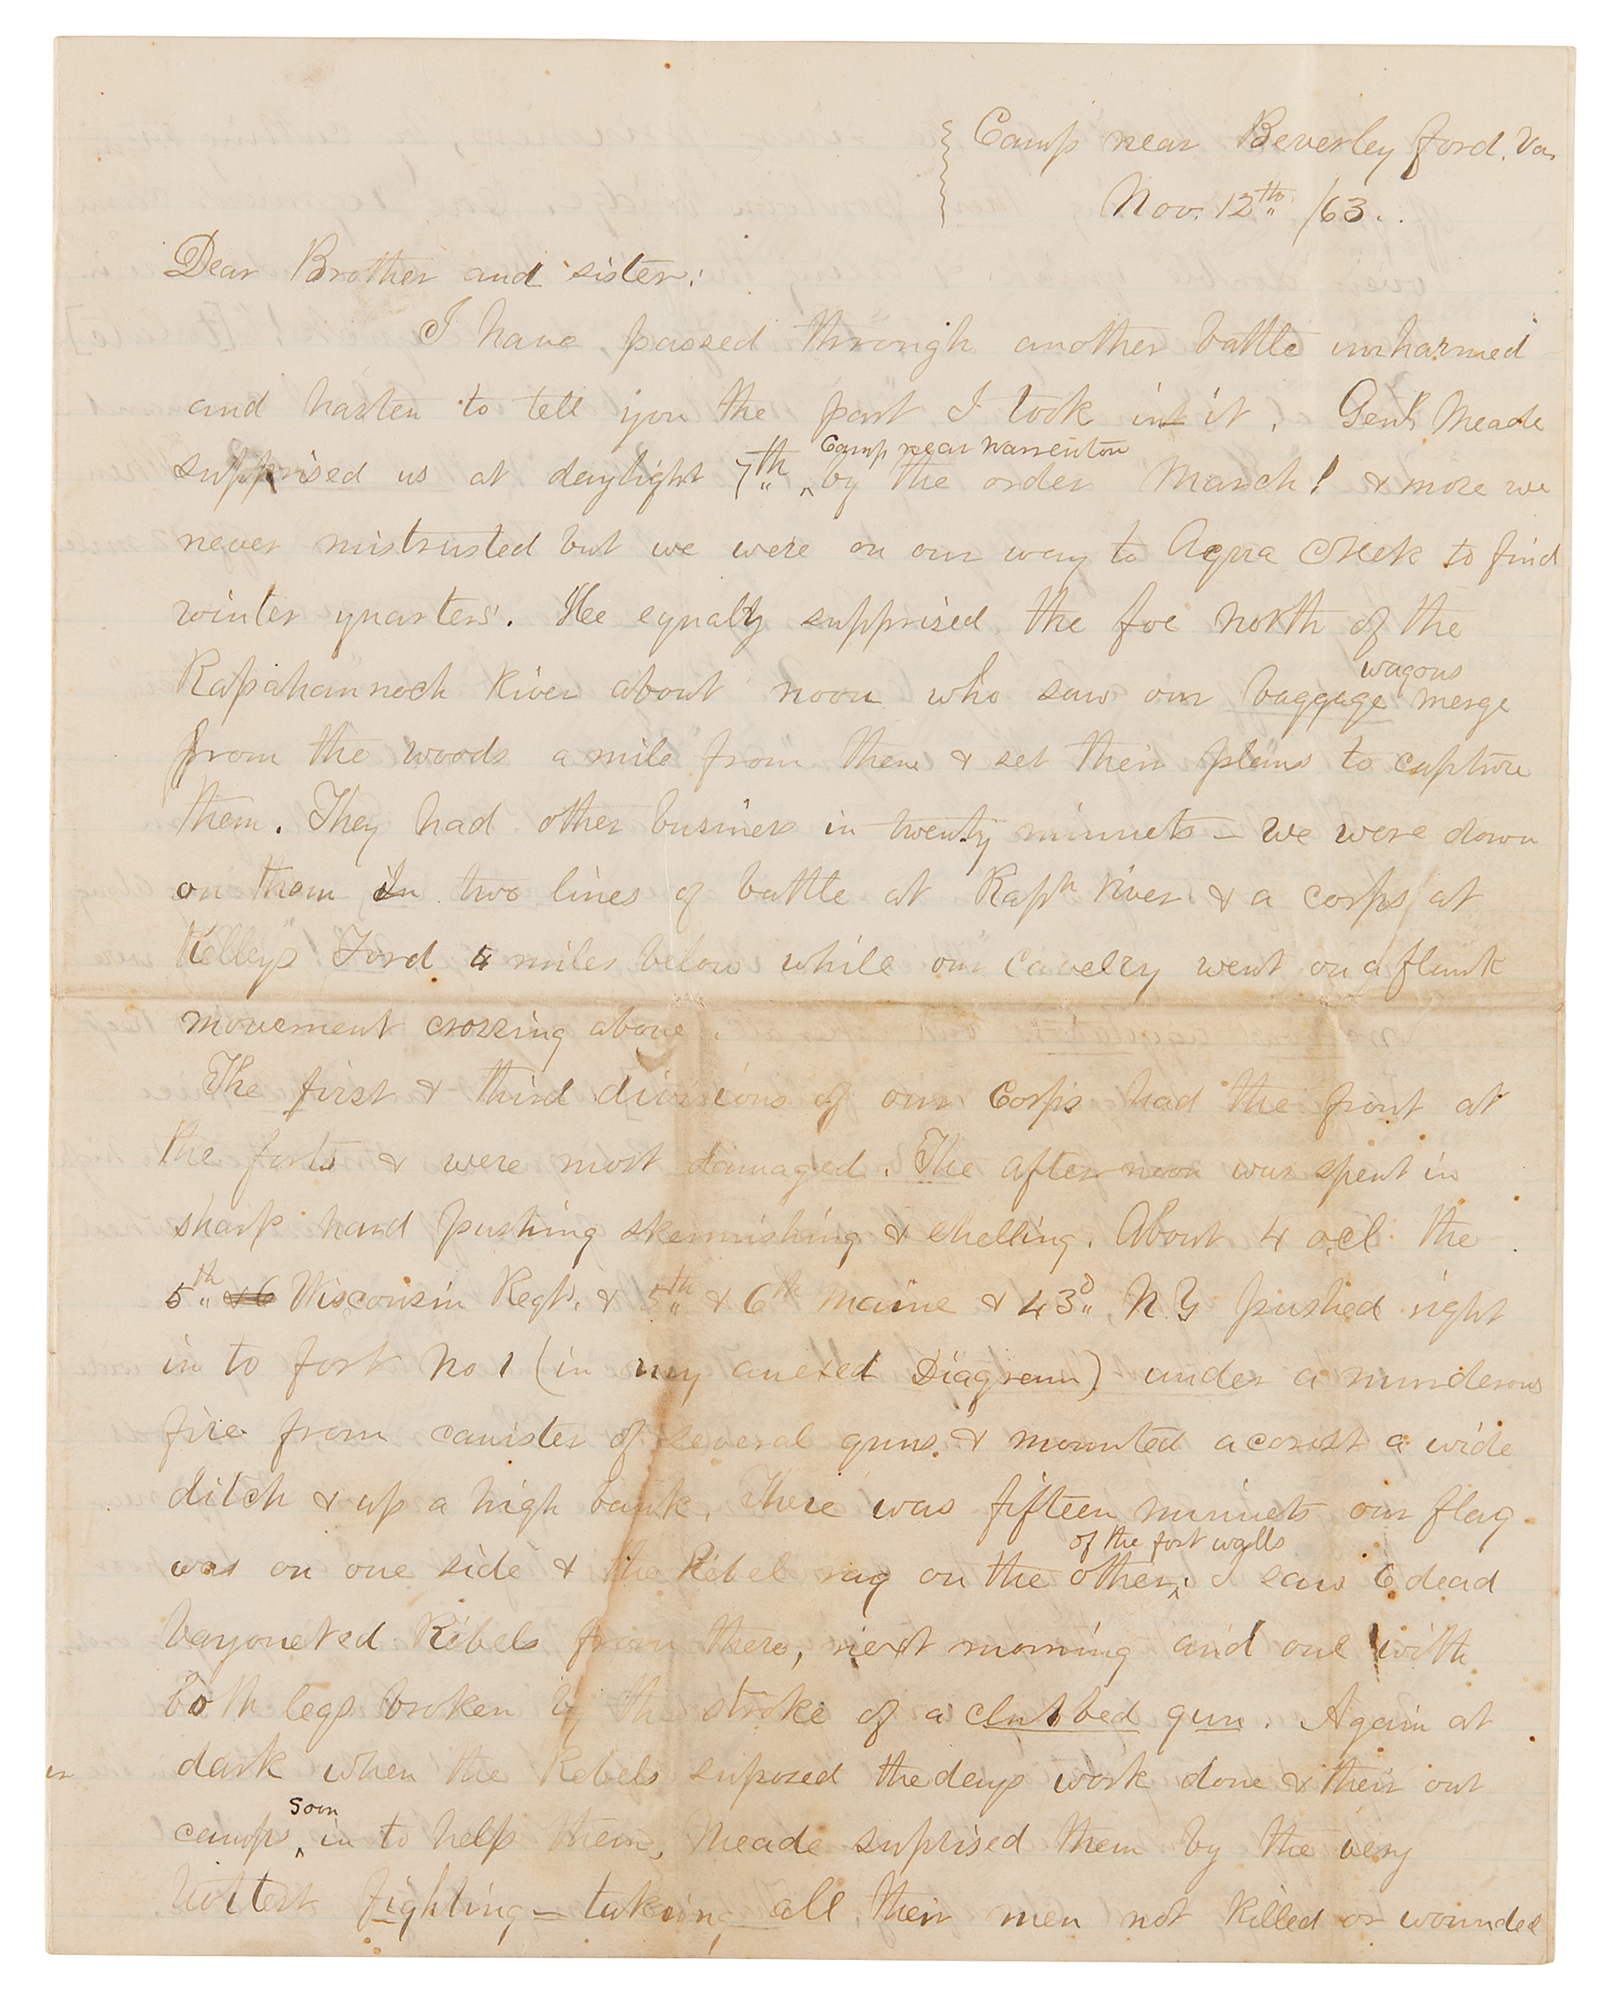 Camp near Beverley ford, Va.
Nov. 12th /63.
Dear Brother and sister:
I have passed through another battle unharmed
and hasten to tell you the part I took in it. Genl. Meade
Camp near Warrenton
supprised us at daylight 7th ‸ by the order March! & more we
never mistrusted but we were on our way to Aqua Creek to find
winter quarters. We equally supprised the foe north of the
wagons
Rapahannock River about noon who saw our baggage merge
from the woods a mile from them & set their plans to capture
them. They had other business in twenty minuets – we were down
on them in two lines of battle at Raph river & a corps at
Kelleys Ford 4 miles below while our cavelry went on a flank
movement crossing above.
The first & third divisions of our Corps had the front at
the forts & were most damaged. The afternoon was spent in
sharp hard pushing skermishing & shelling. About 4 ocl the
5th & 6 Wisconsin Regt. & 5th & 6th Maine & 43d N.Y pushed right
in to fort No 1 (in my anexed Diagram) under a murderous
fire from canister of several guns & mounted acrosst a wide
ditch & up a high bank. There was fifteen minuets our flag
of the fort walls
was on one side & the Rebel rag on the other‸. I saw 6 dead
bayoneted Rebels from there, next morning and one with
both legs broken by the stroke of a clubbed gun. Again at
dark when the Rebels suposed the days work done & their out
soon
camps ‸ in to help them, Meade suprised them by the very
hottest fighting – takeing all their men not killed or wounded